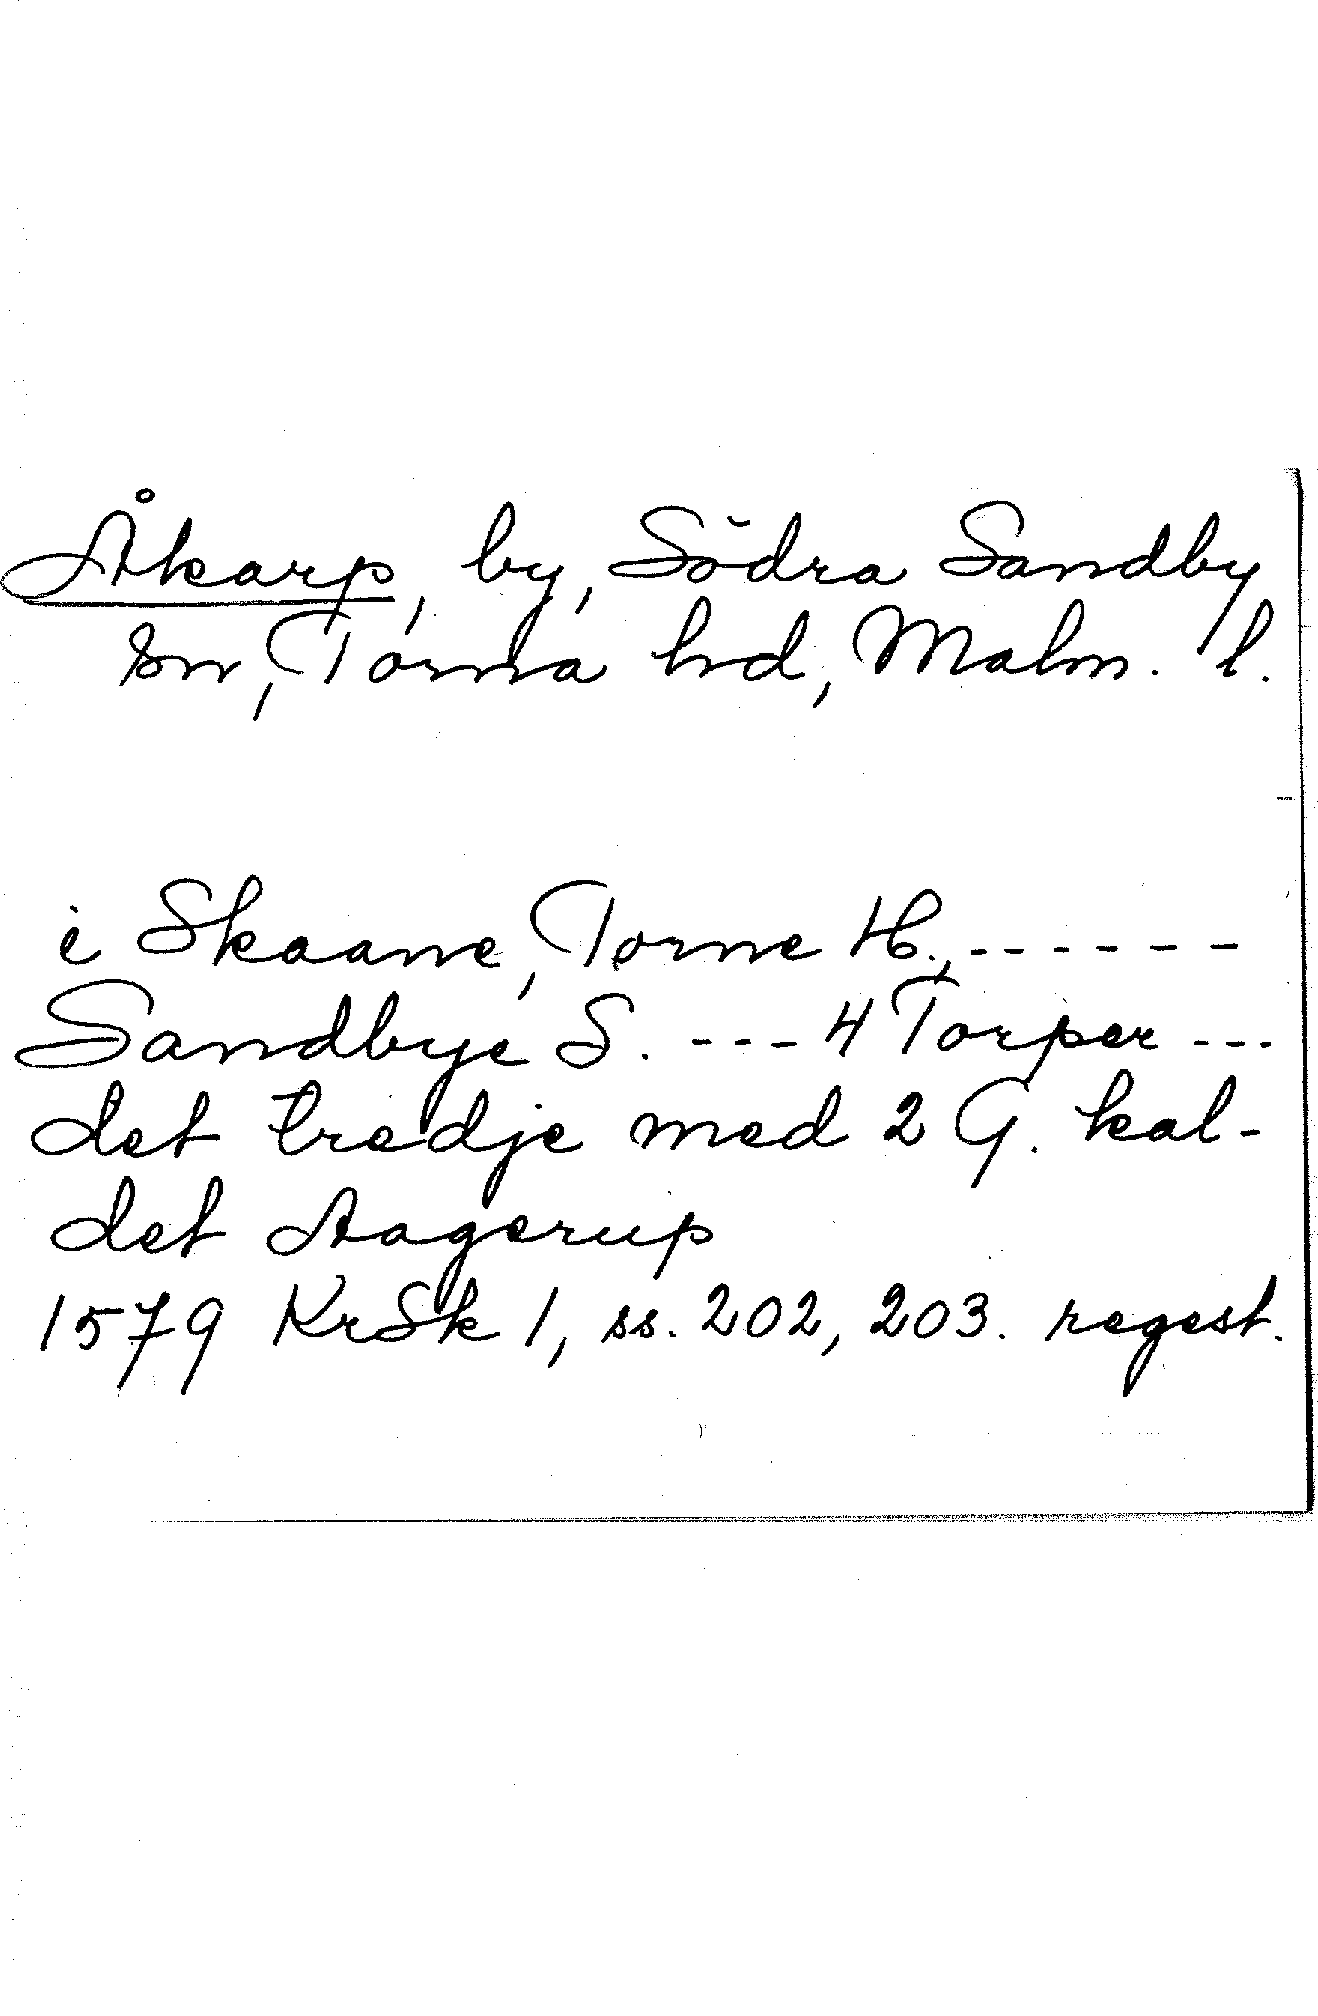 Åkarp, by, Södra Sandby
sn, Torna hd, Malm. l.
i Skaane, Torne H., - - - - - -
Sandbye S. - - - 4 Torper - - -
det tredje med 2 G. kal-
det Aagerup
1579 KrSk 1, ss. 202, 203. regest.